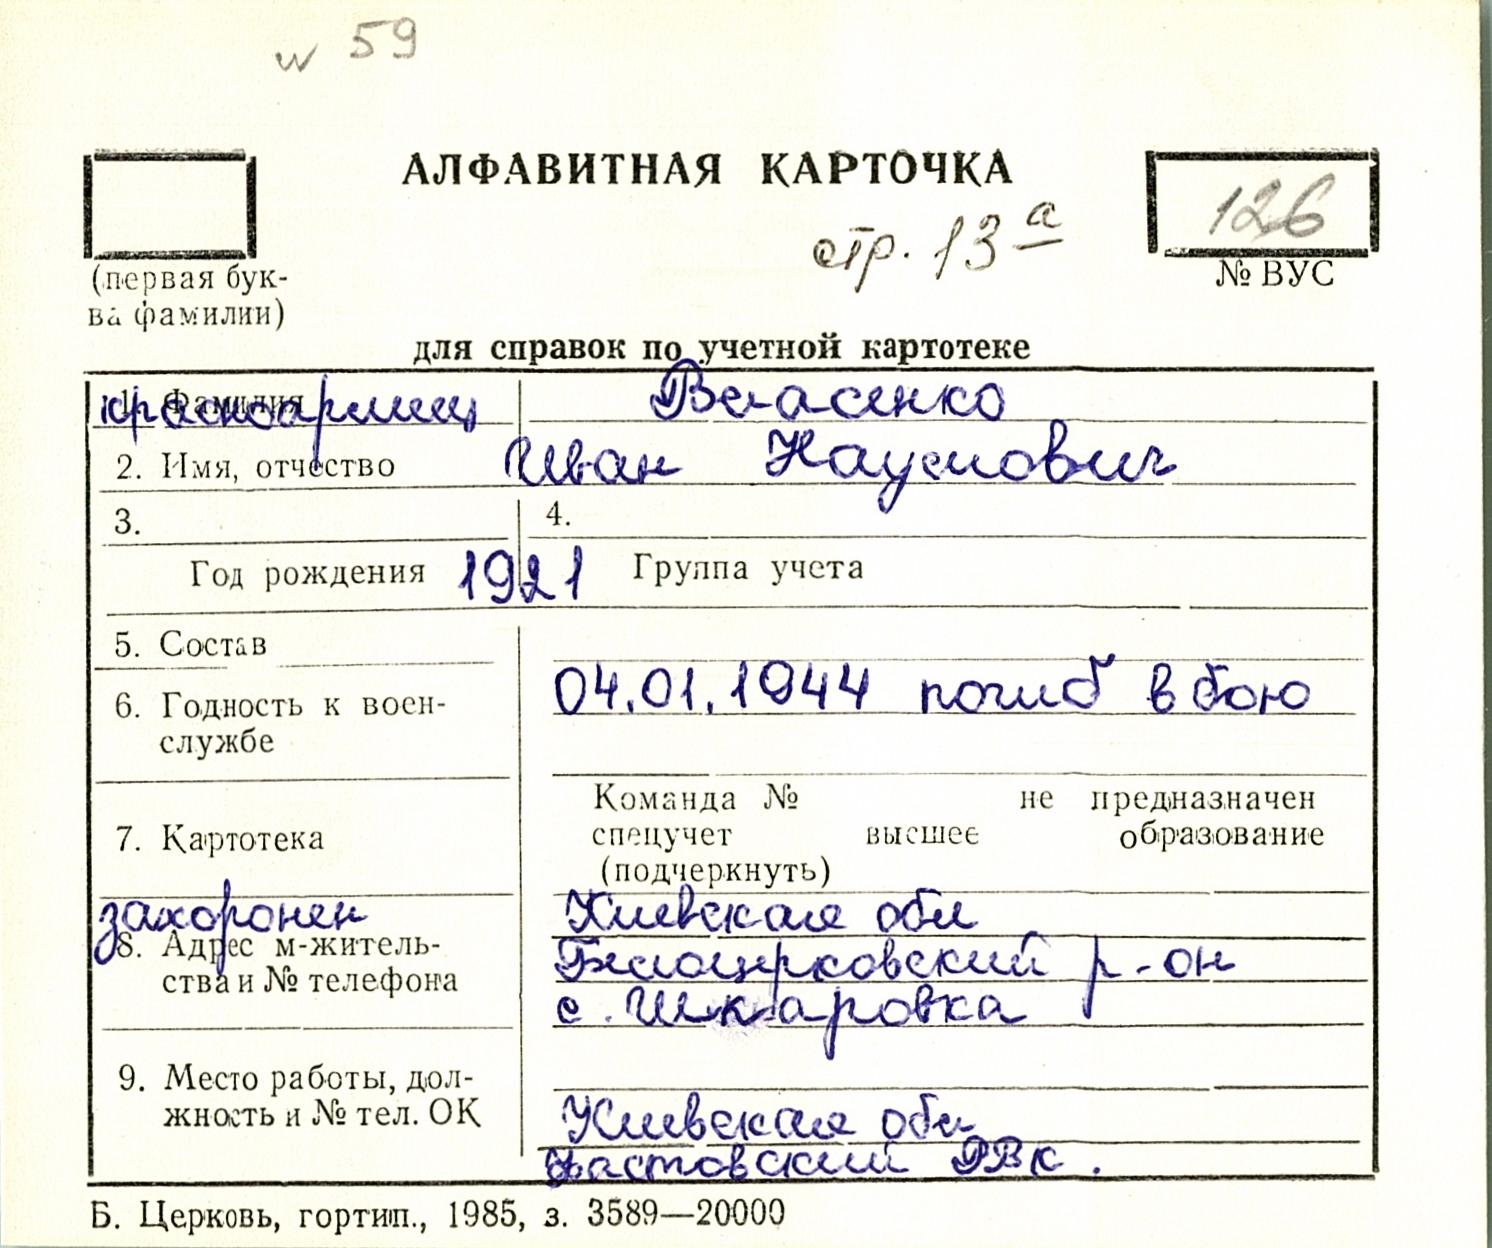 w 59
АЛФАВИТНАЯ КАРТОЧКА
126
стр. 13 а
(первая бук-
ва фамилии)
№ ВУС
для справок по учетной картотеке
1. Фамилия
красноармеец Власенко
2. Имя, отчество Иван Наумович
3. 4.
Год рождения 1921 Группа учета
5. Состав
04.01.1944 погиб в бою
6. Годность к воен-
службе
Команда № не предназначен
7. Картотека спецучет высшее образование
(подчеркнуть)
захоронен Киевская обл
8. Адрес м-житель- Белоцерковский р-он
ства и № телефона с. Шкаровка
9. Место работы, дол-
жность и № тел. ОК Киевская обл
Фастовский РВК.
Б. Церковь, гортип., 1985, з. 3589—20000